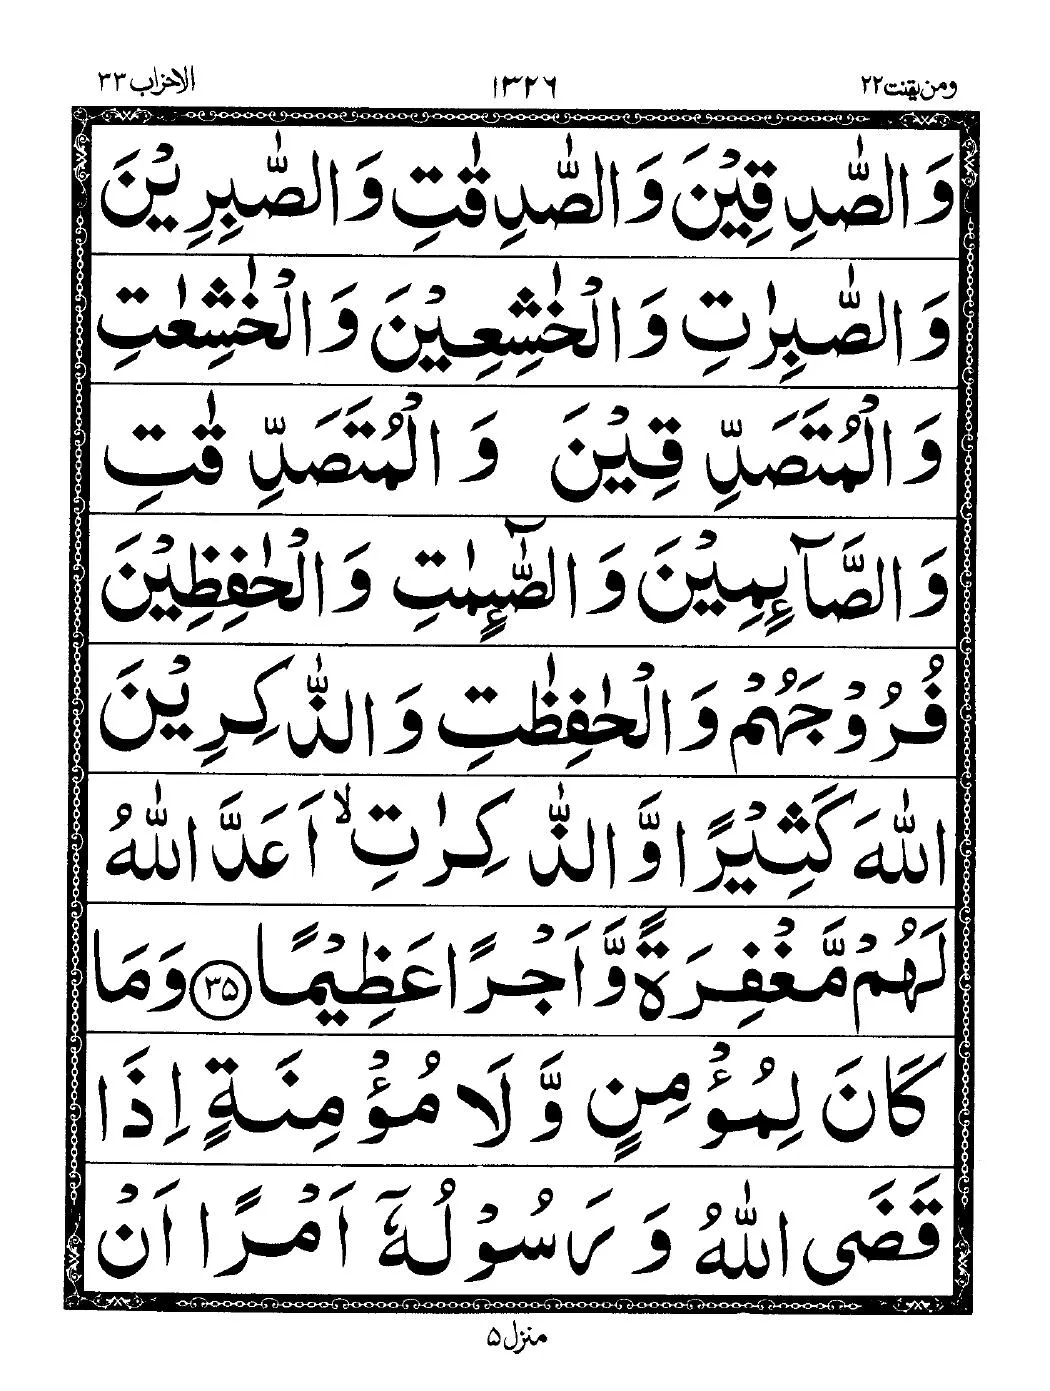 ومن یقنت ۲۲ ۱۳۲۶ الاحزاب ۳۳
وَالصّٰدِقِیْنَ وَالصّٰدِقٰتِ وَالصّٰبِرِیْنَ
وَالصّٰبِرٰتِ وَالْخٰشِعِیْنَ وَالْخٰشِعٰتِ
وَالْمُتَصَدِّقِیْنَ وَالْمُتَصَدِّقٰتِ
وَالصَّآىِٕمِیْنَ وَالصّٰٓىِٕمٰتِ وَالْحٰفِظِیْنَ
فُرُوْجَهُمْ وَالْحٰفِظٰتِ وَالذّٰكِرِیْنَ
اللّٰهَ كَثِیْرًا وَّالذّٰكِرٰتِ ۙ اَعَدَّ اللّٰهُ
لَهُمْ مَّغْفِرَةً وَّاَجْرًا عَظِیْمًا ۳۵ وَمَا
كَانَ لِمُؤْمِنٍ وَّلَا مُؤْمِنَةٍ اِذَا
قَضَی اللّٰهُ وَرَسُوْلُهٗۤ اَمْرًا اَنْ
منزل ۵